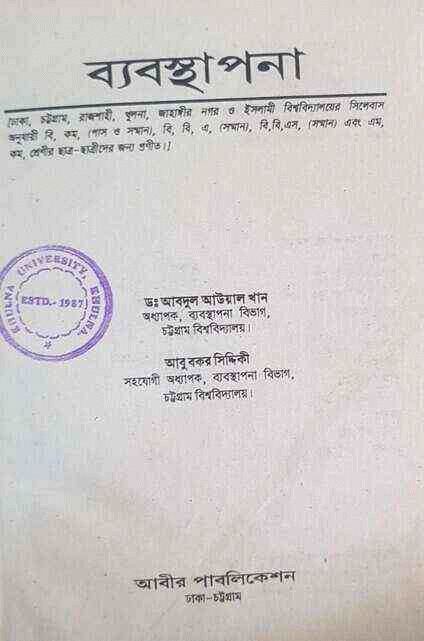 ব্যবস্থাপনা
[ঢাকা, চট্টগ্রাম, রাজশাহী, খুলনা, জাহাঙ্গীর নগর ও ইসলামী বিশ্ববিদ্যালয়ের সিলেবাস
অনুযায়ী বি, কম, (পাস ও সম্মান), বি, বি, এ, (সম্মান), বি,বি,এস, (সম্মান) এবং এম,
কম, শ্রেণীর ছাত্র-ছাত্রীদের জন্য প্রণীত।]
KHULNA UNIVERSITY, KHULNA.
ESTD.- 1987
ডঃ আবদুল আউয়াল খান
অধ্যাপক, ব্যবস্থাপনা বিভাগ,
চট্টগ্রাম বিশ্ববিদ্যালয়।
আবু বকর সিদ্দিকী
সহযোগী অধ্যাপক, ব্যবস্থাপনা বিভাগ,
চট্টগ্রাম বিশ্ববিদ্যালয়।
আবীর পাবলিকেশন
ঢাকা-চট্টগ্রাম